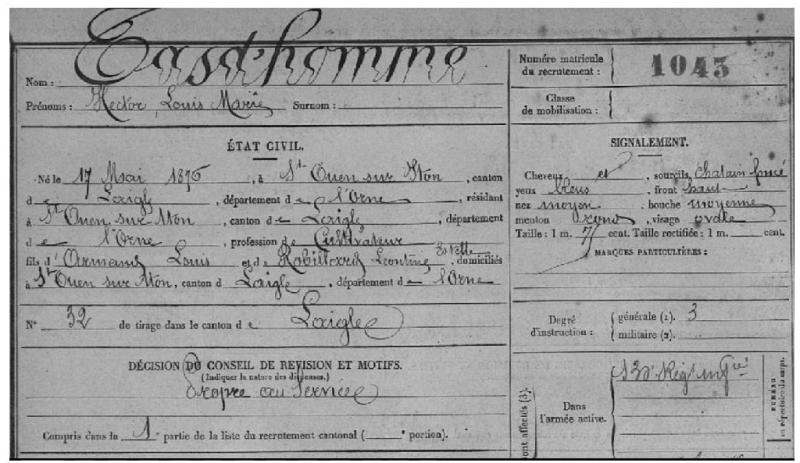 Nom : Tasd'homme
Prénoms : Hector, Louis Marie Surnom :
ÉTAT CIVIL.
Né le 17 Mai 1876, à St Ouen sur Iton, canton
de Laigle, département de l'Orne, résidant
à St Ouen sur Iton, canton de Laigle, département
de l'Orne, profession de Cultivateur
fils d'Armand Louis et de Robillard Léontine Estelle, domiciliés
à St Ouen sur Iton, canton de Laigle, département de l'Orne
N° 32 de tirage dans le canton de Laigle
DÉCISION DU CONSEIL DE RÉVISION ET MOTIFS.
(Indiquer la nature des dispenses.)
Propre au Service
Compris dans la 1 partie de la liste du recrutement cantonal ( portion).
Numéro matricule
du recrutement : 1043
Classe
de mobilisation :
SIGNALEMENT.
Cheveux et sourcils châtain foncé
yeux bleus, front haut
nez moyen, bouche moyenne
menton rond, visage ovale
Taille : 1 m. cent. Taille rectifiée : 1 m. cent.
MARQUES PARTICULIÈRES :
Degré
d'instruction :
générale (1). 3
militaire (2).
Dans
l'armée active.